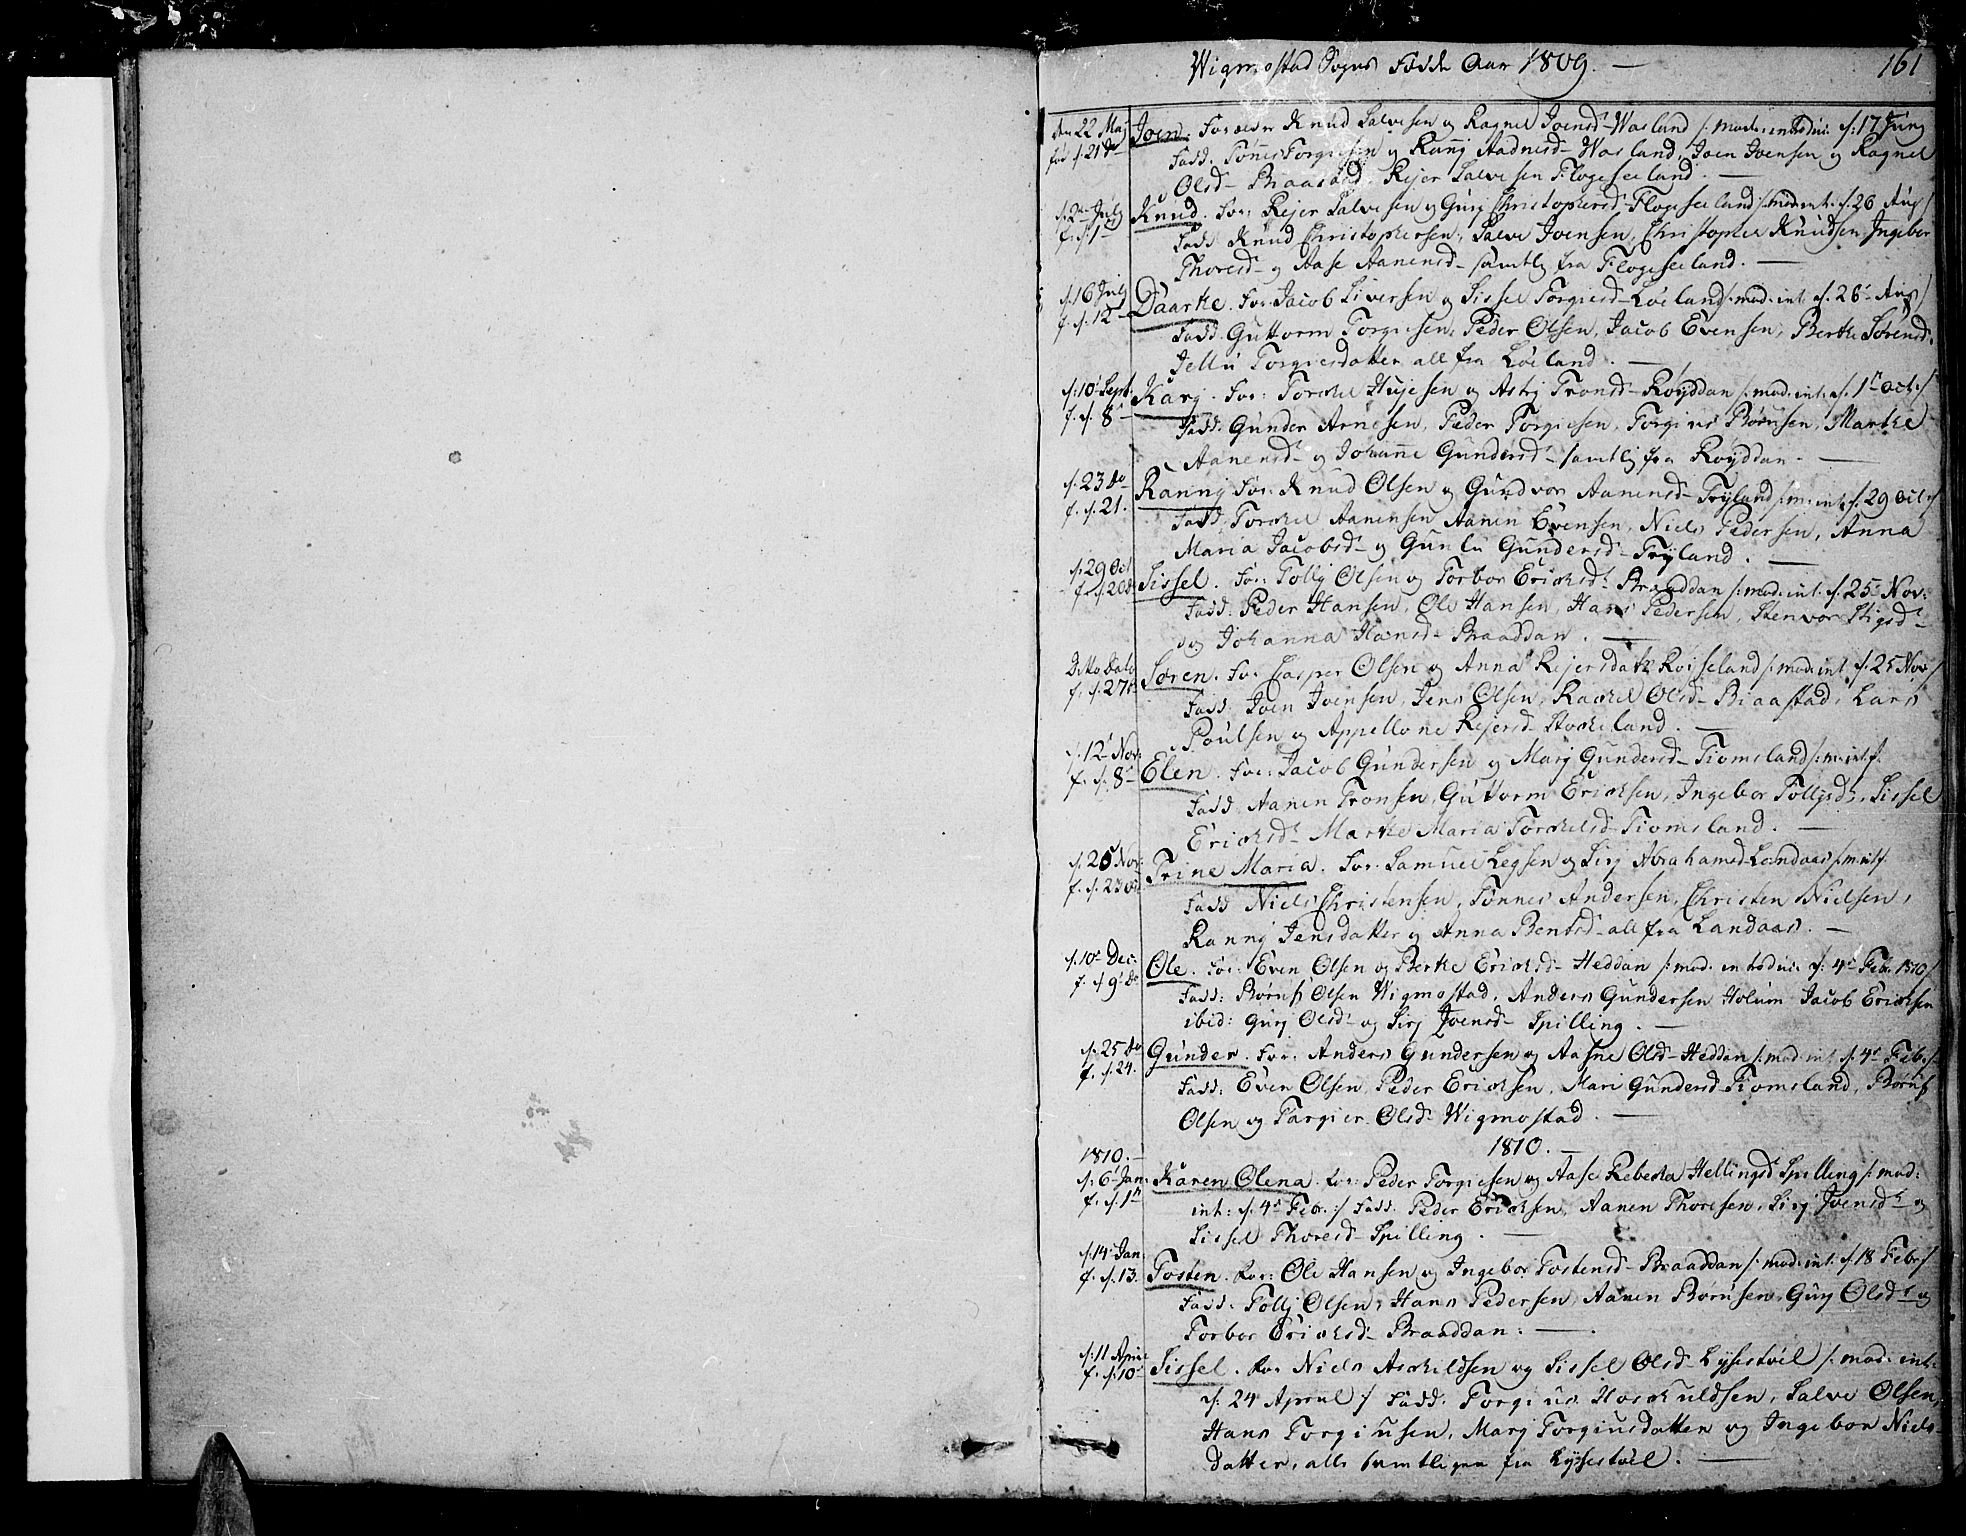 Wigmostad Sogns Fødde Aar 1809. 161
den 22 Maj Joen: Forældr Knud Salvesen og Ragnel Joensd- Wasland /: mod: introduc: d: 17 Junj
fød d. 21 do Fadd: Tönnes Torgiesen og Ranni Aadnesd- Wasland, Joen Joensen og Ragnel
Olsd- Braastad, Rejer Salvesen Flogeseeland.
d: 2 Julj Knud. For: Rejer Salvesen og Gurj Christophersd- Flogeseeland /: mod: int. d. 26 Aug /
f. d. 1 Fadd: Knud Christophersen, Salve Joensen, Christopher Knudsen, Ingebor
Thoresd- og Aase Aanensd- samtlig fra Flogeseeland.
d: 16 Julj Daarthe. For: Jacob Siversen og Sissel Torgiesd- Løeland /: mod: int d. 26 Aug /
f. d. 12 Fadd: Guttorm Torgiesen, Peder Olsen, Jacob Evensen, Berthe Sørensd.
Jellu Torgiesdatter all fra Løeland.
d: 10 Sept: Karj. For: Torkel Hujesen og Astrj Tronsd- Røyddan /: mod: int: d. 1 Oct: /
f. d. 8 Fadd: Gunder Arnesen, Peder Torgiesen, Torgius Børusen, Marthe
Aanensd- og Johanne Gundersd- samtlig fra Røyddan.
d. 23 do Rannj For: Knud Olsen og Gundvor Aanensd- Tryland /: m: int d. 29 Oct: /
f. d. 21. Fadd: Torkel Aanensen, Aanen Evensen, Niels Pedersen, Anna
Maria Jacobsd- og Gunlu Gundersd- Tryland.
d. 29 Oct Sissel. For: Tollj Olsen og Torbor Ericksd- Braaddan /: mod: int. d. 25 Nov:
f. d. 20 do Fadd: Peder Hansen, Ole Hansen, Hans Pedersen, Stenvor Stigsd-
og Johanna Hansd- Braaddan.
Ditto Dato Søren. For: Casper Olsen og Anna Rejersdatt. Røiseland /: mod: int. d. 25 Nov /
f. d. 27 Fadd: Joen Joensen, Jens Olsen, Rachel Olsd- Braastad, Lars
Poulsen og Appellone Rejersd- Stokeland.
d. 12 Nov: Elen. For: Jacob Gundersen og Marj Gundersd- Tiomsland /: m: int d.
f. d. 8 Fadd: Aanen Tronsen, Guttorm Ericksen, Ingebor Tolljsd-, Sissel
Ericksd- Marthe Maria Torkelsd- Tiomsland.
d. 26 Nov: Trine Maria. For: Samuel Legsen og Sirj Abrahamsd- Landaas /: m: int d.
f. d. 23 do Fadd: Niels Christensen, Tønnes Andersen, Christen Nielsen,
Rannj Jensdatter og Anna Bentsd- all fra Landaas.
d. 10 Dec: Ole. For: Even Olsen og Berthe Ericksd- Heddan /: mod: introduc: d: 4 Feb. 1810 /
f. d 9 do Fadd: Børuf Olsen Wigmostad, Anders Gundersen Holum Jacob Ericksen
ibid: Gurj Olsd- og Sirj Joensd- Spilling.
d. 25 do Gunder. For: Anders Gundersen og Aasne Olsd- Heddan /: mod: int d. 4 Feb: /
f. d. 24. Fadd: Even Olsen, Peder Ericksen, Mari Gundersd- Tiomsland, Børuf
Olsen og Targier Olsd- Wigmostad.
1810. 1810.
d: 6 Jan: Karen Olena. For: Peder Torgiesen og Aase Rebecka Hellingsd- Spilling /: mod:
f. d. 1 int: d. 4 Febr. :/ Fadd: Peder Ericksen, Aanen Thoresen, Sirj Joensd- og
Sissel Thoresd- Spilling.
d: 14 Jan: Tosten. For: Ole Hansen og Ingebor Tostensd- Braaddan /: mod: int: d. 18 Febr /
f. d. 13. Fadd: Tollj Olsen, Hans Pedersen, Aanen Børusen, Gurj Olsd- og
Torbor Ericksd- Braaddan:
d: 11 April Sissel. For: Niels Askildsen og Sissel Olsd- Lyssestvel /: mod: int:
f. d. 10 d. 24 April / Fadd: Torgius Hoskuldsen, Salve Olsen,
Hans Torgiusen, Marj Torgiusdatter og Ingebor Niels-
datter, alle samtligen fra Lyssestvel.